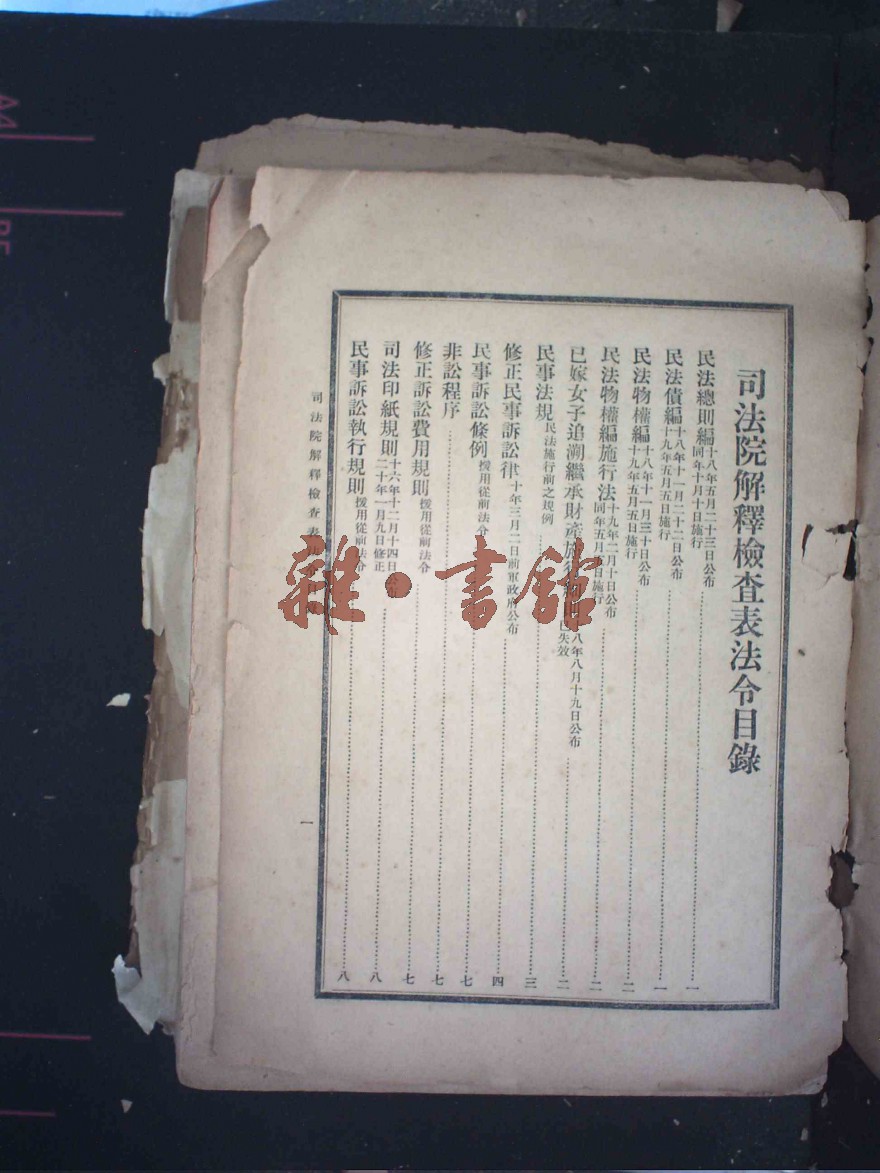 司法院解釋檢查表法令目錄
民法總則編十八年五月二十三日公布同年十月十日施行一
民法債編十八年十一月二十二日公布十九年五月五日施行一
民法物權編十八年十一月三十日公布十九年五月五日施行二
民法物權編施行法十九年二月十日公布同年五月五日施行二
已嫁女子追溯繼承財產施行細則八年八月十九日公布已失效二
民事法規民法施行前之規例三
修正民事訴訟律十年三月二日前軍政府公布四
民事訴訟條例援用從前法令七
非訟程序七
修正訴訟費用規則援用從前法令七
司法印紙規則十六年十二月十四日公二十年一月九日修正八
民事訴訟執行規則援用從前法令八
司法院解釋檢查表
一
雜·書館
A4
B5